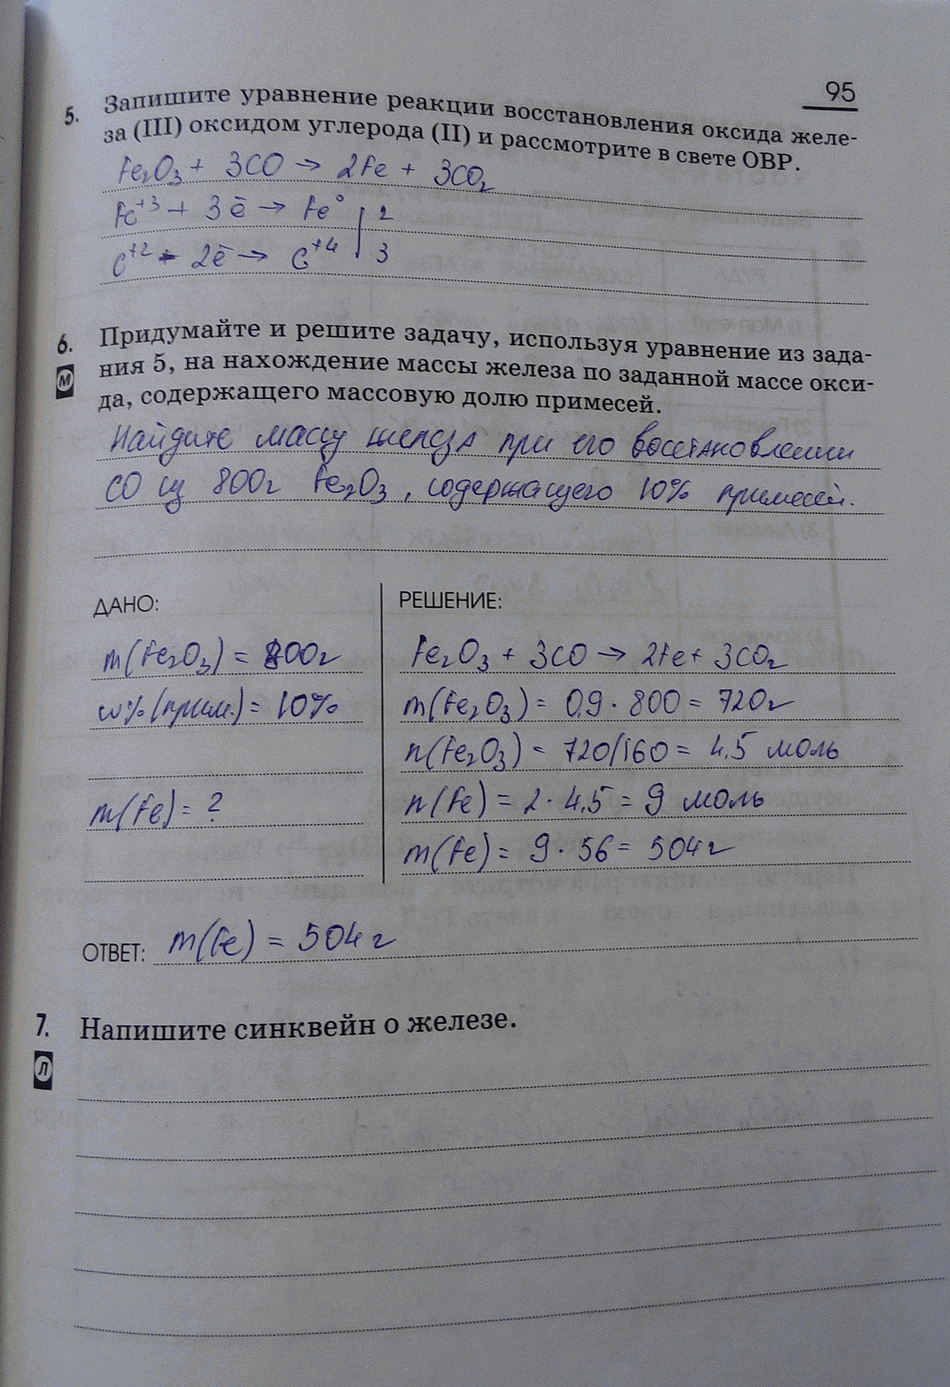 95
5. Запишите уравнение реакции восстановления оксида желе-
за (III) оксидом углерода (II) и рассмотрите в свете ОВР.
Fe₂O₃ + 3CO → 2Fe + 3CO₂
Fe⁺³ + 3ē → Fe⁰ | 2
C⁺² - 2ē → C⁺⁴ | 3
6. Придумайте и решите задачу, используя уравнение из зада-
М ния 5, на нахождение массы железа по заданной массе окси-
да, содержащего массовую долю примесей.
Найдите массу железа при его восстановлении
CO из 800г Fe₂O₃, содержащего 10% примесей.
ДАНО:
m(Fe₂O₃) = 800г
w%(прим.) = 10%
m(Fe) = ?
РЕШЕНИЕ:
Fe₂O₃ + 3CO → 2Fe + 3CO₂
m(Fe₂O₃) = 0,9 · 800 = 720г
n(Fe₂O₃) = 720/160 = 4,5 моль
n(Fe) = 2 · 4,5 = 9 моль
m(Fe) = 9 · 56 = 504г
ОТВЕТ: m(Fe) = 504г
7. Напишите синквейн о железе.
Л